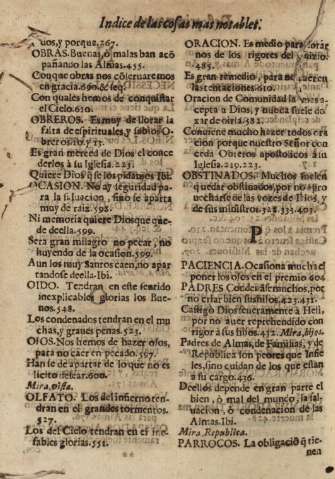 Indice de las cosas mas notables.
uos, y porque, 267.
OBRAS. Buenas, ò malas ban acõ
pañando las Almas. 455.
Con que obras nos cõseruaremos
en gracia. 690. & seq.
Con quales hemos de conquistar
el Cielo. 620.
OBREROS. Es muy de llorar la
falta de espirituales, y sabios O-
breros. 10. y 13.
Es gran merced de Dios el conce
derlos à su Iglesia. 223.
Quiere Dios q̃ se los pidamos. Ibi.
OCASION. No ay seguridad pa-
ra la saluacion, sino se aparta
muy de raiz. 598.
Ni memoria quiere Dios que que-
de de ella. 599.
Sera gran milagro no pecar, no
huyendo de la ocasion. 599.
Aun los muy Santos caen, no apar
tandose de ella. Ibi.
OIDO. Tendran en este sentido
inexplicables glorias los Bue-
nos. 548.
Los condenados tendran en el mu
chas, y graues penas. 523.
OJOS. Nos hemos de hazer ojos,
para no caer en pecado. 597.
Han se de apartar de lo que no es
licito dessear. 600.
Mira, Vista.
OLFATO. Los del infierno ten-
dran en el grandes tormentos.
527.
Los del Cielo tendran en el ine-
fables glorias. 551.
ORACION. Es medio para librar
nos de los rigores del juizio.
485.
Es gran remedio, para no caer en
las tentaciones. 610.
Oracion de Comunidad la mas
accepta à Dios, y nunca suele de
xar de oirla. 582.
Conuiene mucho hazer todos ora
cion porque nuestro Señor con
ceda Obreros apostolicos à su
Iglesia. 219. 223.
OBSTINADOS. Muchos suelen
quedar obstinados, por no apro
uecharse de las vozes de Dios, y
de sus ministros. 328. 333. 401.
P
PACIENCIA. Ocasiona mucha el
poner los ojos en el premio 604
PADRES Condenãse muchos, por
no criar bien sus hijos. 423. 431.
Castigò Dios seueramente à Heli,
por no auer reprehendido con
rigor a sus hijos. 432. Mira, Hijo.
Padres de Almas, de Familias, y de
Republica son peores que Infie
les, sino cuidan de los que estan
a su cargo. 436.
De ellos depende en gran parte el
bien, ò mal del mundo, la sal-
uacion, ò condenacion de las
Almas. Ibi.
Mira, Republica.
PARROCOS. La obligaciõ q̃ tie-
nen